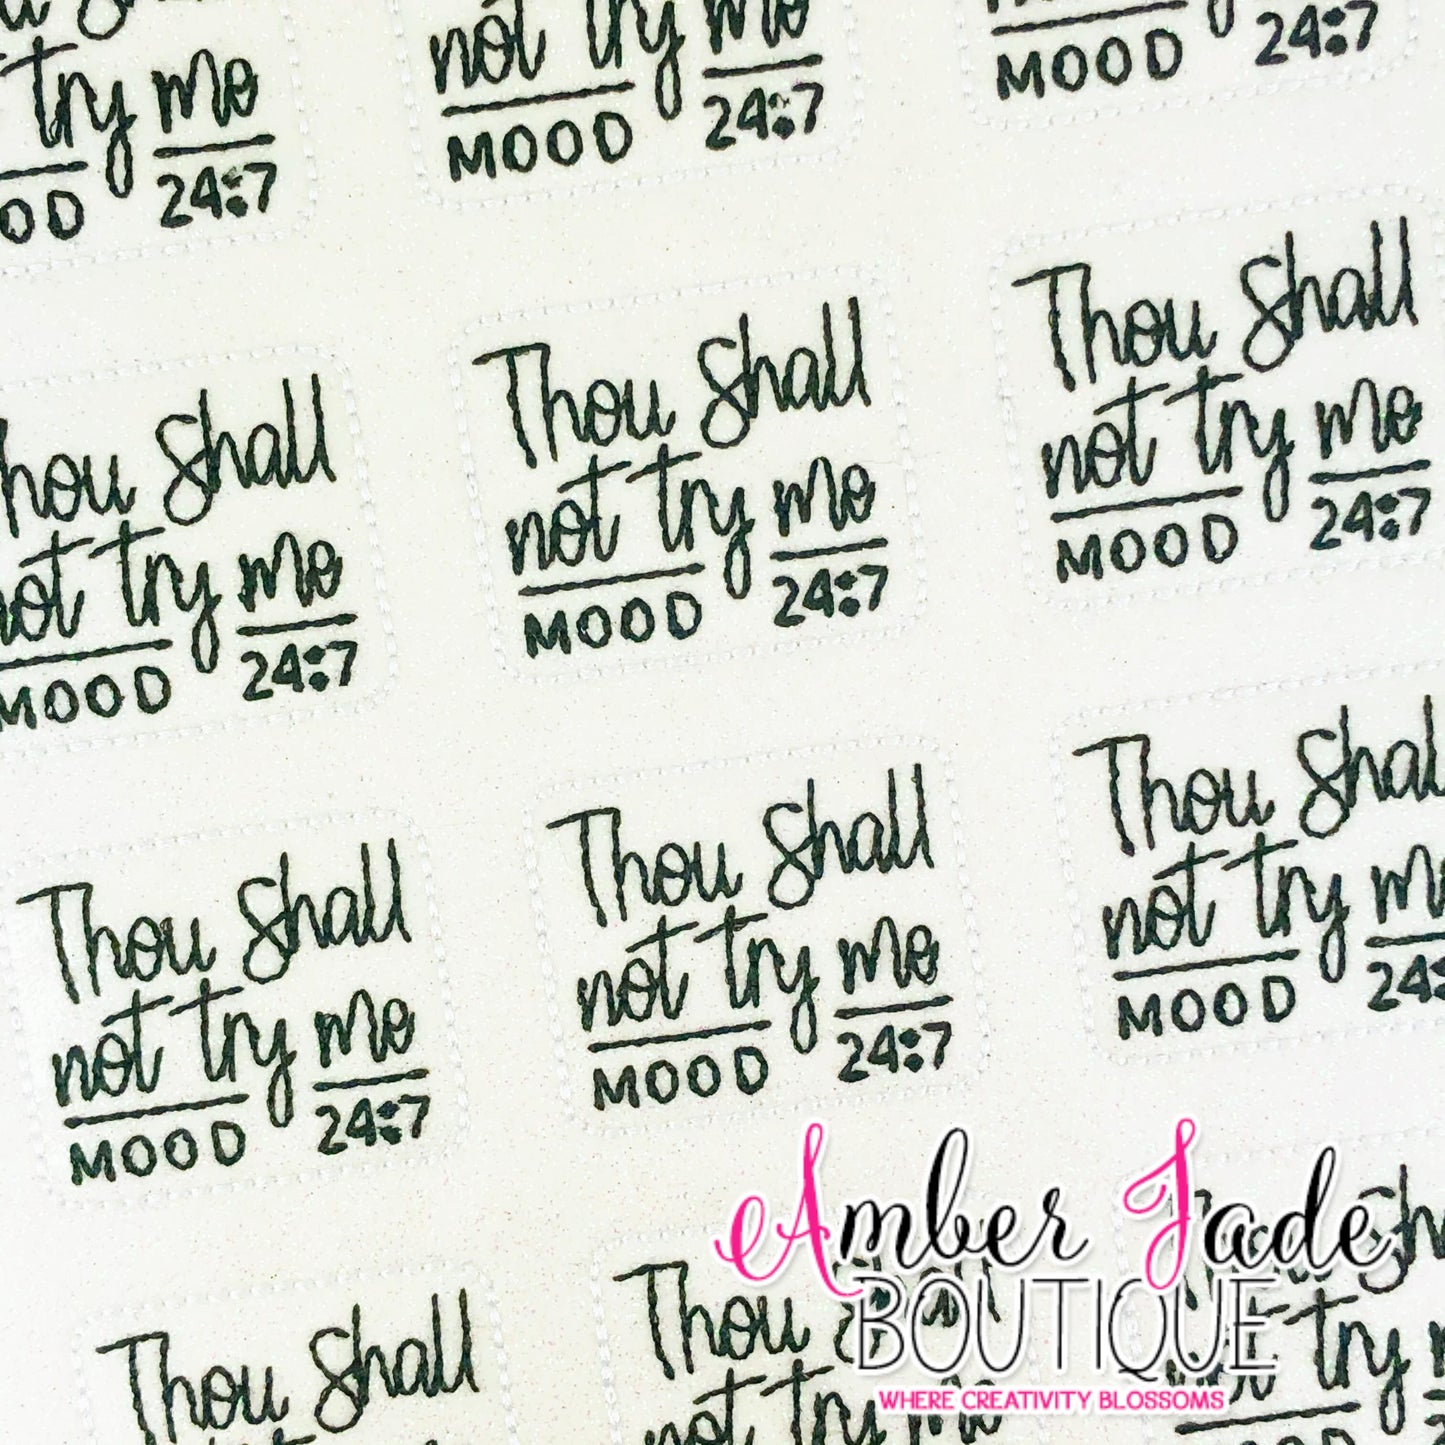 not try me
MOOD 24:7
try me
24:7
MOOD 24:7
Thou Shall
not try me
MOOD 24:7
Thou Shall
not try me
MOOD 24:7
Thou Shall
not try me
MOOD 24:7
Thou Shall
not try me
MOOD 24:7
Thou Shall
not try me
MOOD 24:7
Thou
not try
MOOD
Thou Shall
Thou
not try me
try
Amber Jade
BOUTIQUE
WHERE CREATIVITY BLOSSOMS